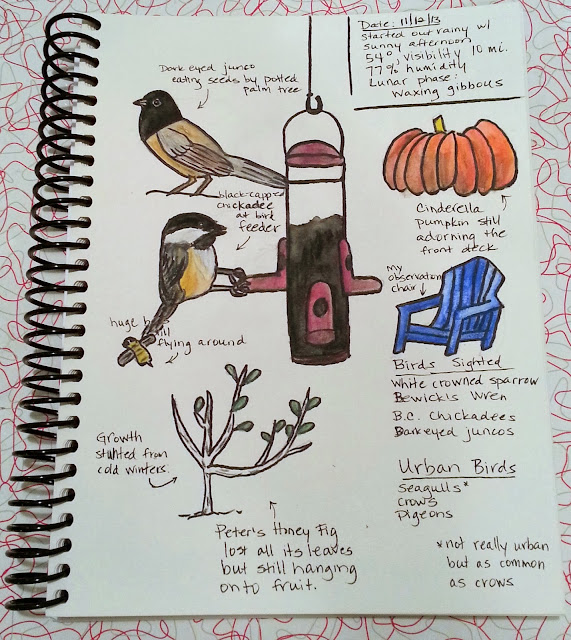 Date: 11/12/13
started out rainy w/
sunny afternoon
54°, visibility 10 mi.
77% humidity
Lunar phase:
waxing gibbous
Dark eyed junco
eating seeds by potted
palm tree
black-capped
chickadee
at bird
feeder
Cinderella
pumpkin still
adorning the
front deck
my
observation
chair
huge
flying around
Birds Sighted
White crowned sparrow
Bewick's Wren
B.C. Chickadees
Dark eyed juncos
Growth
stunted from
cold winters.
Urban Birds
Seagulls*
Crows
Pigeons
Peter's Honey Fig
lost all its leaves
but still hanging
onto fruit.
*not really urban
but as common
as crows